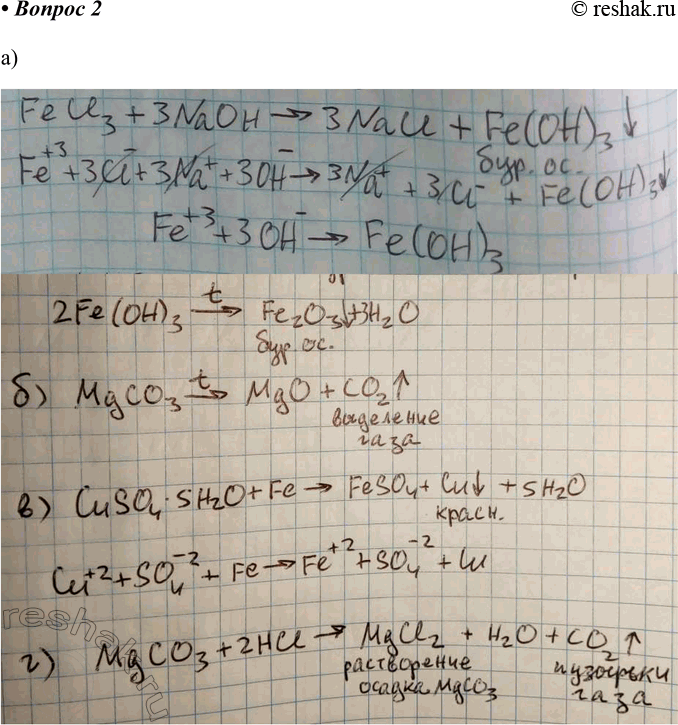 • Вопрос 2
© reshak.ru
а)
FeCl₃ + 3NaOH → 3NaCl + Fe(OH)₃↓
бур. ос.
Fe⁺³ + 3Cl⁻ + 3Na⁺ + 3OH⁻ → 3Na⁺ + 3Cl⁻ + Fe(OH)₃↓
Fe⁺³ + 3OH⁻ → Fe(OH)₃
2Fe(OH)₃ →t Fe₂O₃↓ + 3H₂O
бур. ос.
б) MgCO₃ →t MgO + CO₂↑
выделение
газа
в) CuSO₄·5H₂O + Fe → FeSO₄ + Cu↓ + 5H₂O
красн.
Cu⁺² + SO₄⁻² + Fe → Fe⁺² + SO₄⁻² + Cu
г) MgCO₃ + 2HCl → MgCl₂ + H₂O + CO₂↑
растворение пузырьки
осадка MgCO₃ газа
reshak.ru